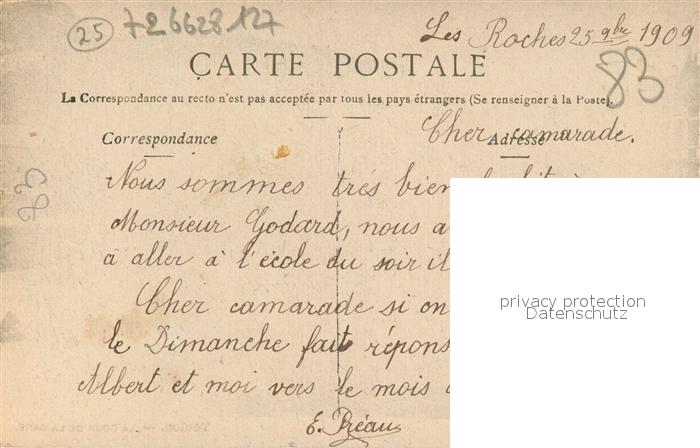 25 726628 127
Les Roches 25 9bre 1909
CARTE POSTALE
83
La Correspondance au recto n'est pas acceptée par tous les pays étrangers (Se renseigner à la Poste).
Correspondance
Adresse
Cher camarade.
83
Nous sommes trés bien
Monsieur Godard, nous a
à aller à l'école du soir il
Cher camarade si on
le Dimanche fait répons
Albert et moi vers le mois
E. Préau
privacy protection
Datenschutz